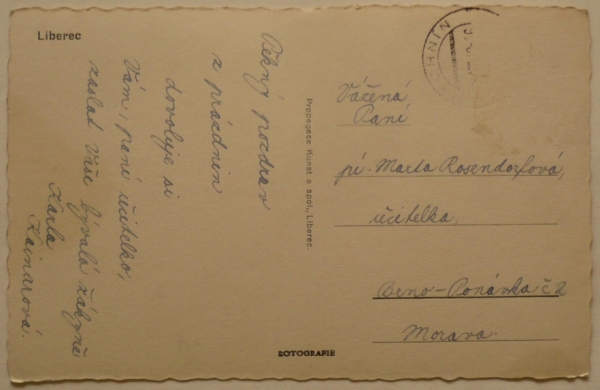 Liberec
Pěkný pozdrav
z prázdnin
dovoluje si
Vám, paní učitelko,
zaslat Vaše bývalá žákyně
Karla
Kainarová.
Propagace Kunst a spol., Liberec.
Vážená
Paní
pí. Marta Rosendorfová,
učitelka,
Brno-Ponávka č 2
Morava.
ROTOGRAFIE